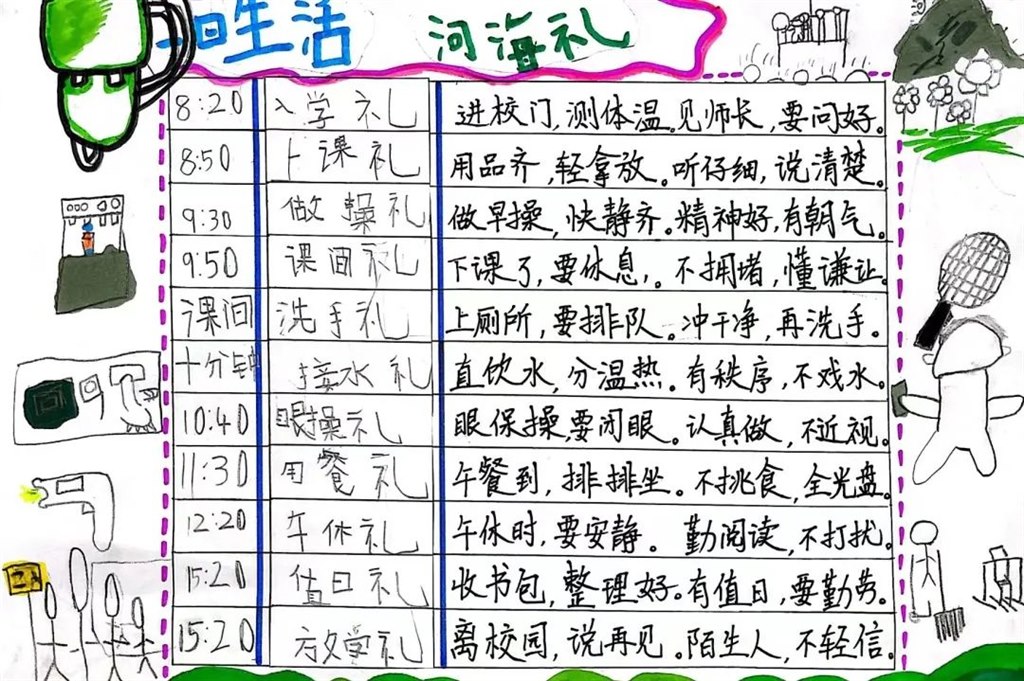 一日生活 河海礼
8:20 入学礼 进校门,测体温。见师长,要问好。
8:50 上课礼 用品齐,轻拿放。听仔细,说清楚。
9:30 做操礼 做早操,快静齐。精神好,有朝气。
9:50 课间礼 下课了,要休息,。不拥堵,懂谦让。
课间 洗手礼 上厕所,要排队。冲干净,再洗手。
十分钟 接水礼 直饮水,分温热。有秩序,不戏水。
10:40 眼操礼 眼保操,要闭眼。认真做,不近视。
11:30 用餐礼 午餐到,排排坐。不挑食,全光盘。
12:20 午休礼 午休时,要安静。勤阅读,不打扰。
15:20 值日礼 收书包,整理好。有值日,要勤劳。
15:20 放学礼 离校园,说再见。陌生人,不轻信。